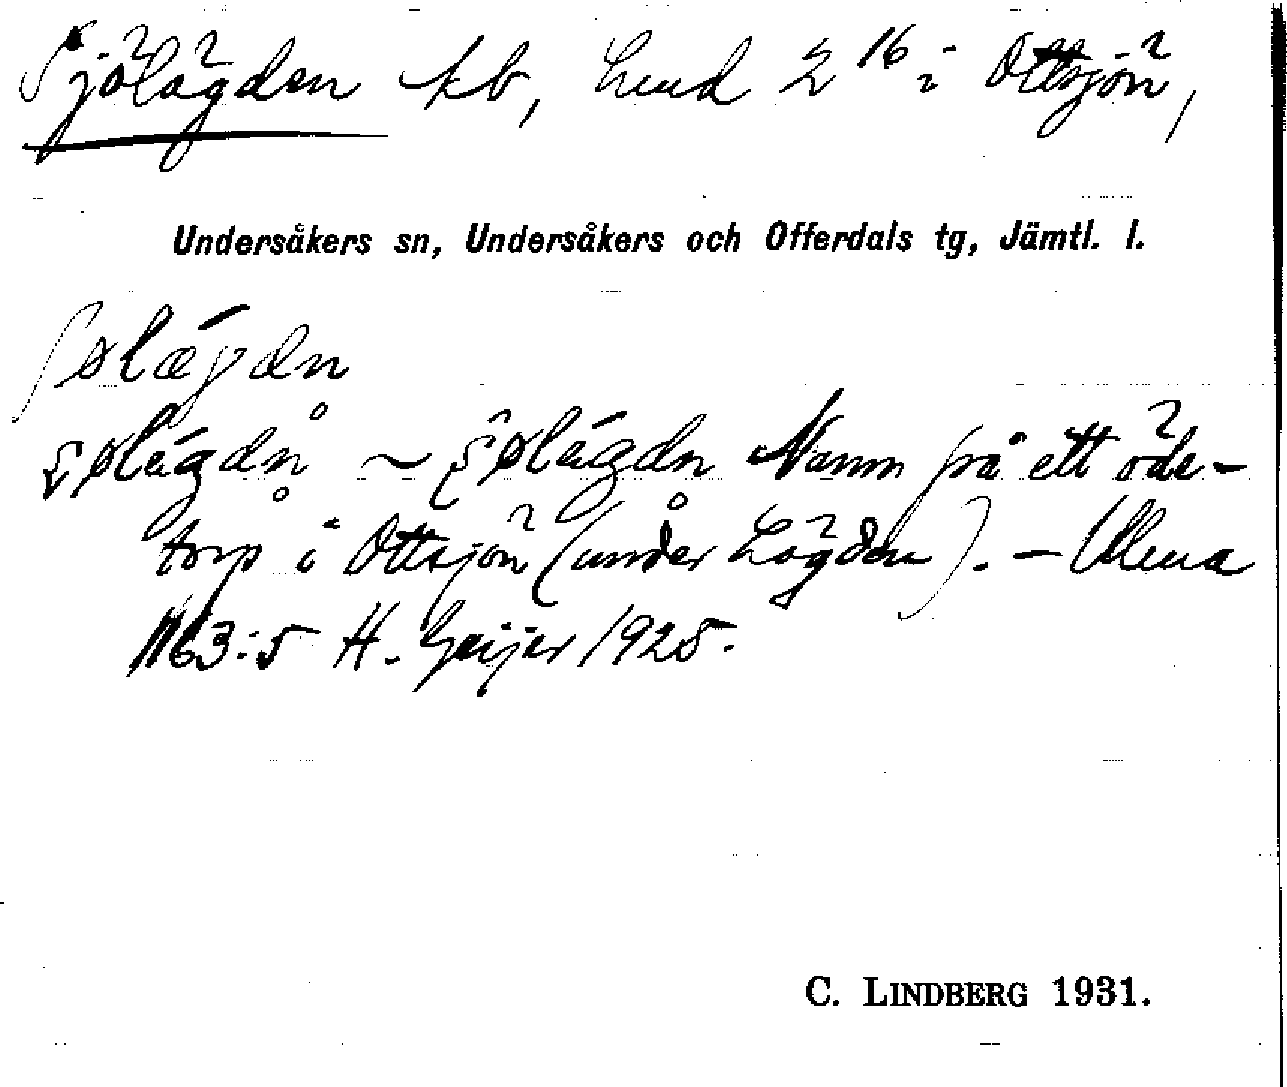 Sjölägden lb, hmd 2¹⁶ i Ottsjön,
Undersåkers sn, Undersåkers och Offerdals tg, Jämtl. l.
ʃølǽgdn
ʂølǽgdn̥ ~ ʂølǽgdn̥ Namn på ett öde-
torp i Ottsjön (under Lägden). – Ulma
1163:5 H. Geijer 1925.
C. LINDBERG 1931.